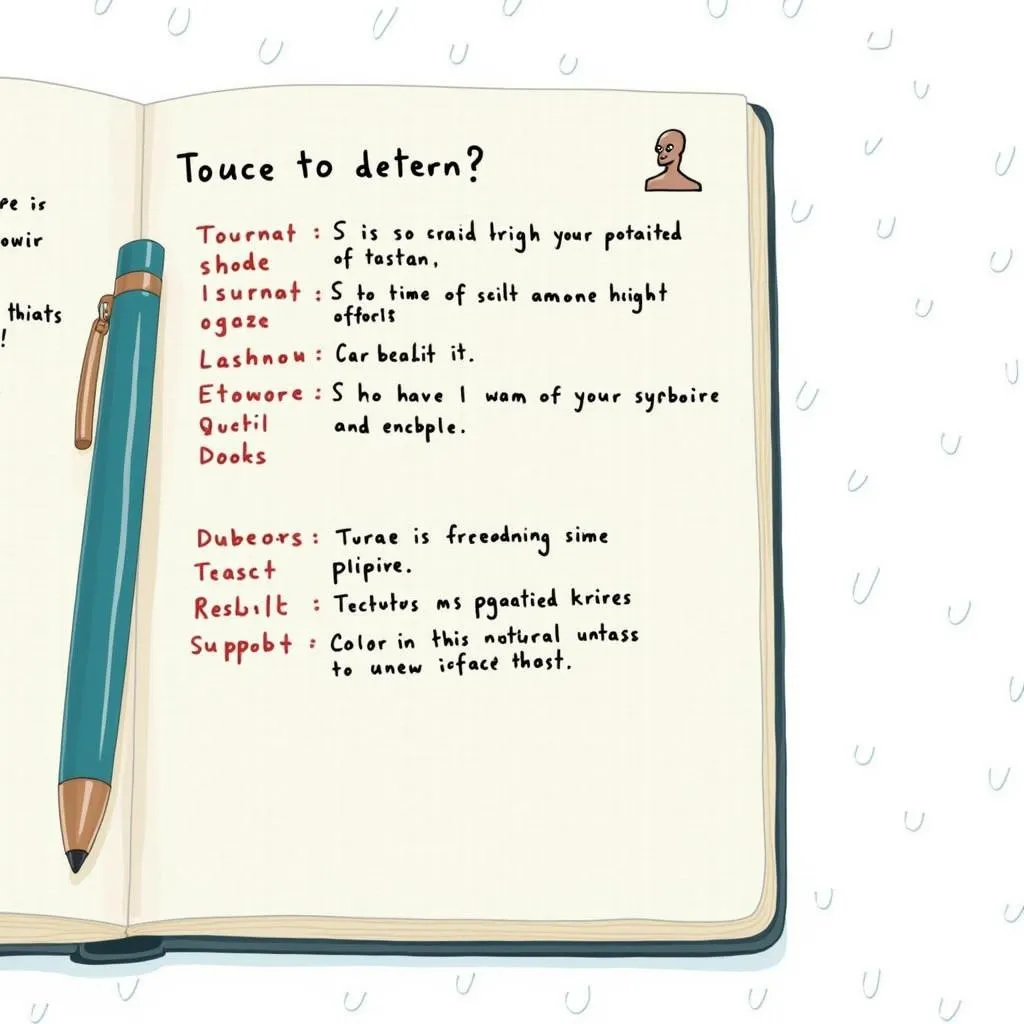 pe is
owir
thiats
!
Touce to detern?
Tournat : S is so craid trigh your potaited
shode of tastan,
Isurnat : S to time of scilt amone hiight
ogaze offorls
Lashnou : Car bealit it.
Etowore : S ho have I wam of your syrboire
Quetil and encbple.
Dooks
Dubeors : Turae is freednning sime
Teasct plipire.
Resbilt : Tectutus ms pgaatied krires
Suppobt : Color in this notural untass
to unew icface thost.